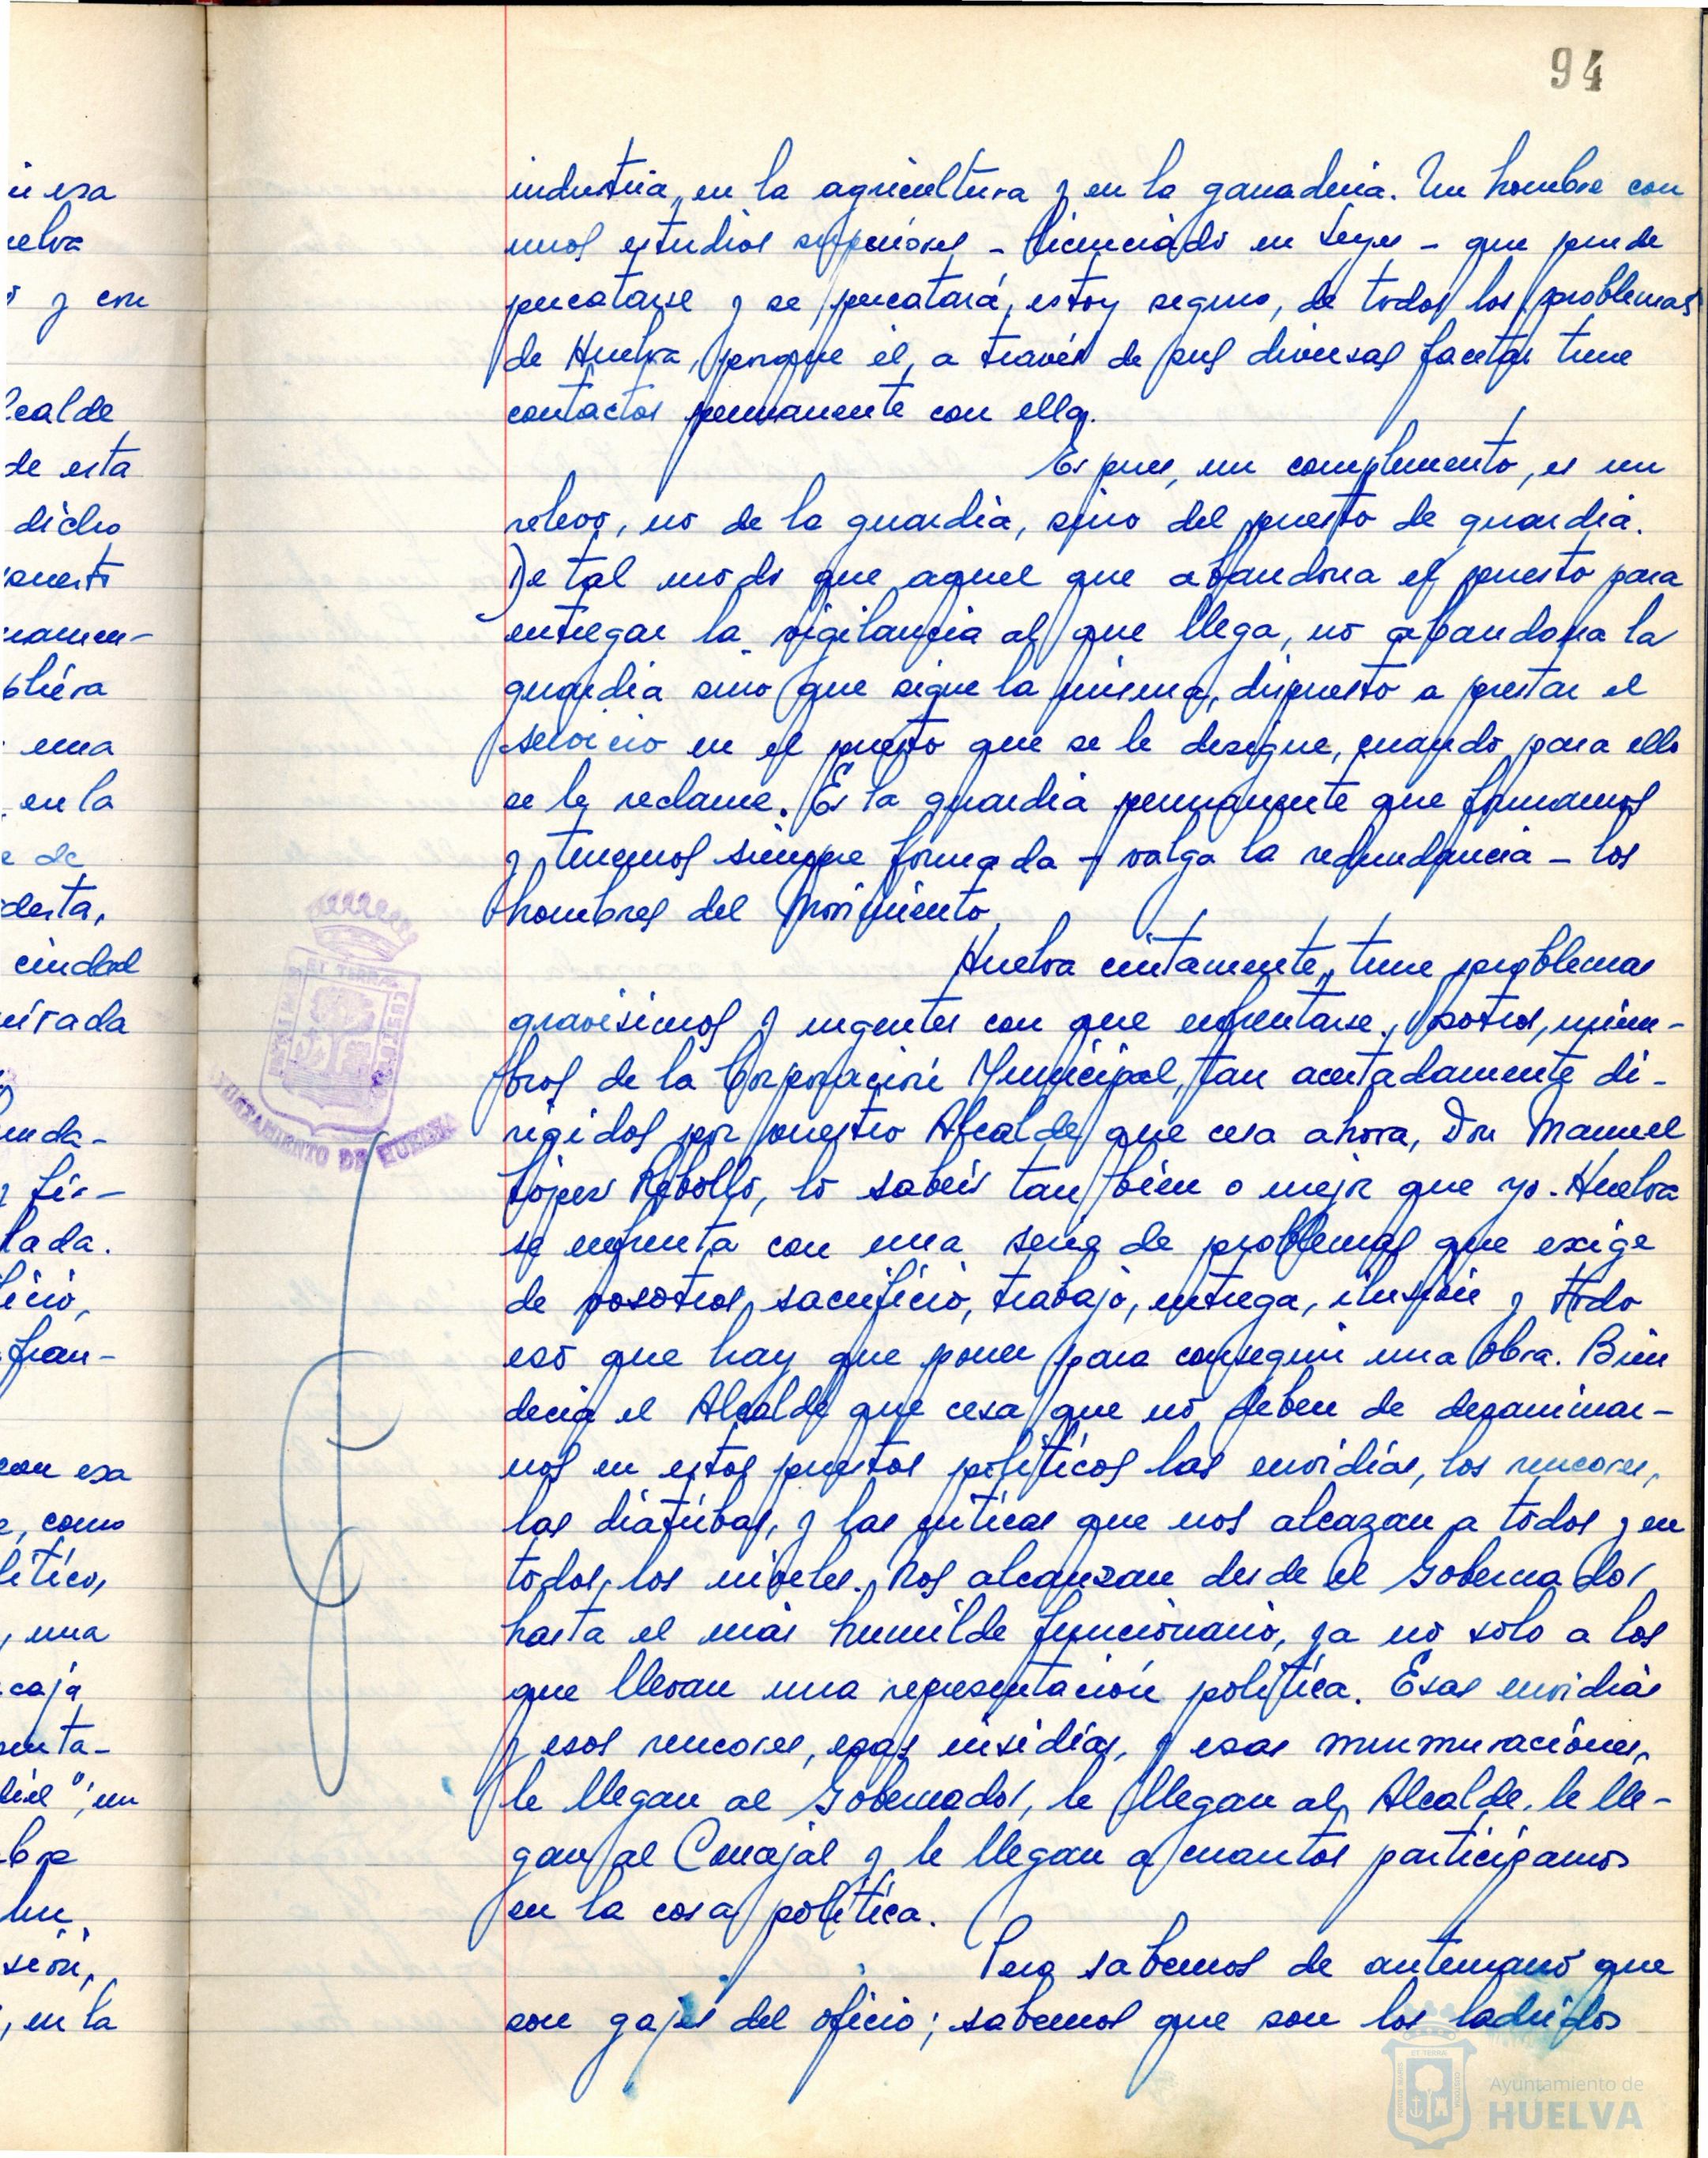 94
industria, en la agricultura y en la ganaderia. Un hombre con
unos estudios superiores - licenciado en Leyes - que puede
percatarse y se percatará, estoy seguro, de todos los problemas
de Huelva, porque él, a través de sus diversas facetas tiene
contactos permanente con ella.
Es pues, un complemento, es un
relevo, no de la guardia, sino del puesto de guardia.
De tal modo que aquel que abandona el puesto para
entregar la vigilancia al que llega, no abandona la
guardia sino que sigue la misma, dispuesto a prestar el
servicio en el puesto que se le designe, cuando para ello
se le reclame. Es la guardia permanente que formamos
y tenemos siempre formada - valga la redundancia - los
hombres del Movimiento.
Huelva ciertamente, tiene problemas
gravisimos y urgentes con que enfrentarse. Vosotros, miem-
bros de la Corporación Municipal, tan acertadamente di-
rigidos por vuestro Alcalde que cesa ahora, Don Manuel
López Rebollo, lo sabeis tan bien o mejor que yo. Huelva
se enfrenta con una serie de problemas que exige
de vosotros, sacrificio, trabajo, entrega, ilusión y todo
eso que hay que poner para conseguir una obra. Bien
decia el Alcalde que cesa que no deben de desanimar-
nos en estos puestos políticos las envidias, los rencores,
las diatribas, y las criticas que nos alcazan a todos y en
todos, los niveles. Nos alcanzan desde el Gobernador
hasta el más humilde funcionario, ya no solo a los
que llevan una representación política. Esas envidias
y esos rencores, esas insidias, y esas murmuraciones,
le llegan al Gobernador, le llegan al Alcalde, le lle-
gan al Concejal y le llegan a cuantos participamos
en la cosa política.
Pero sabemos de antemano que
son gajes del oficio; sabemos que son los ladridos
AYUNTAMIENTO DE HUELVA
Ayuntamiento de
HUELVA
ciudad
dicho
en la
de esta
y con
, como
, en la